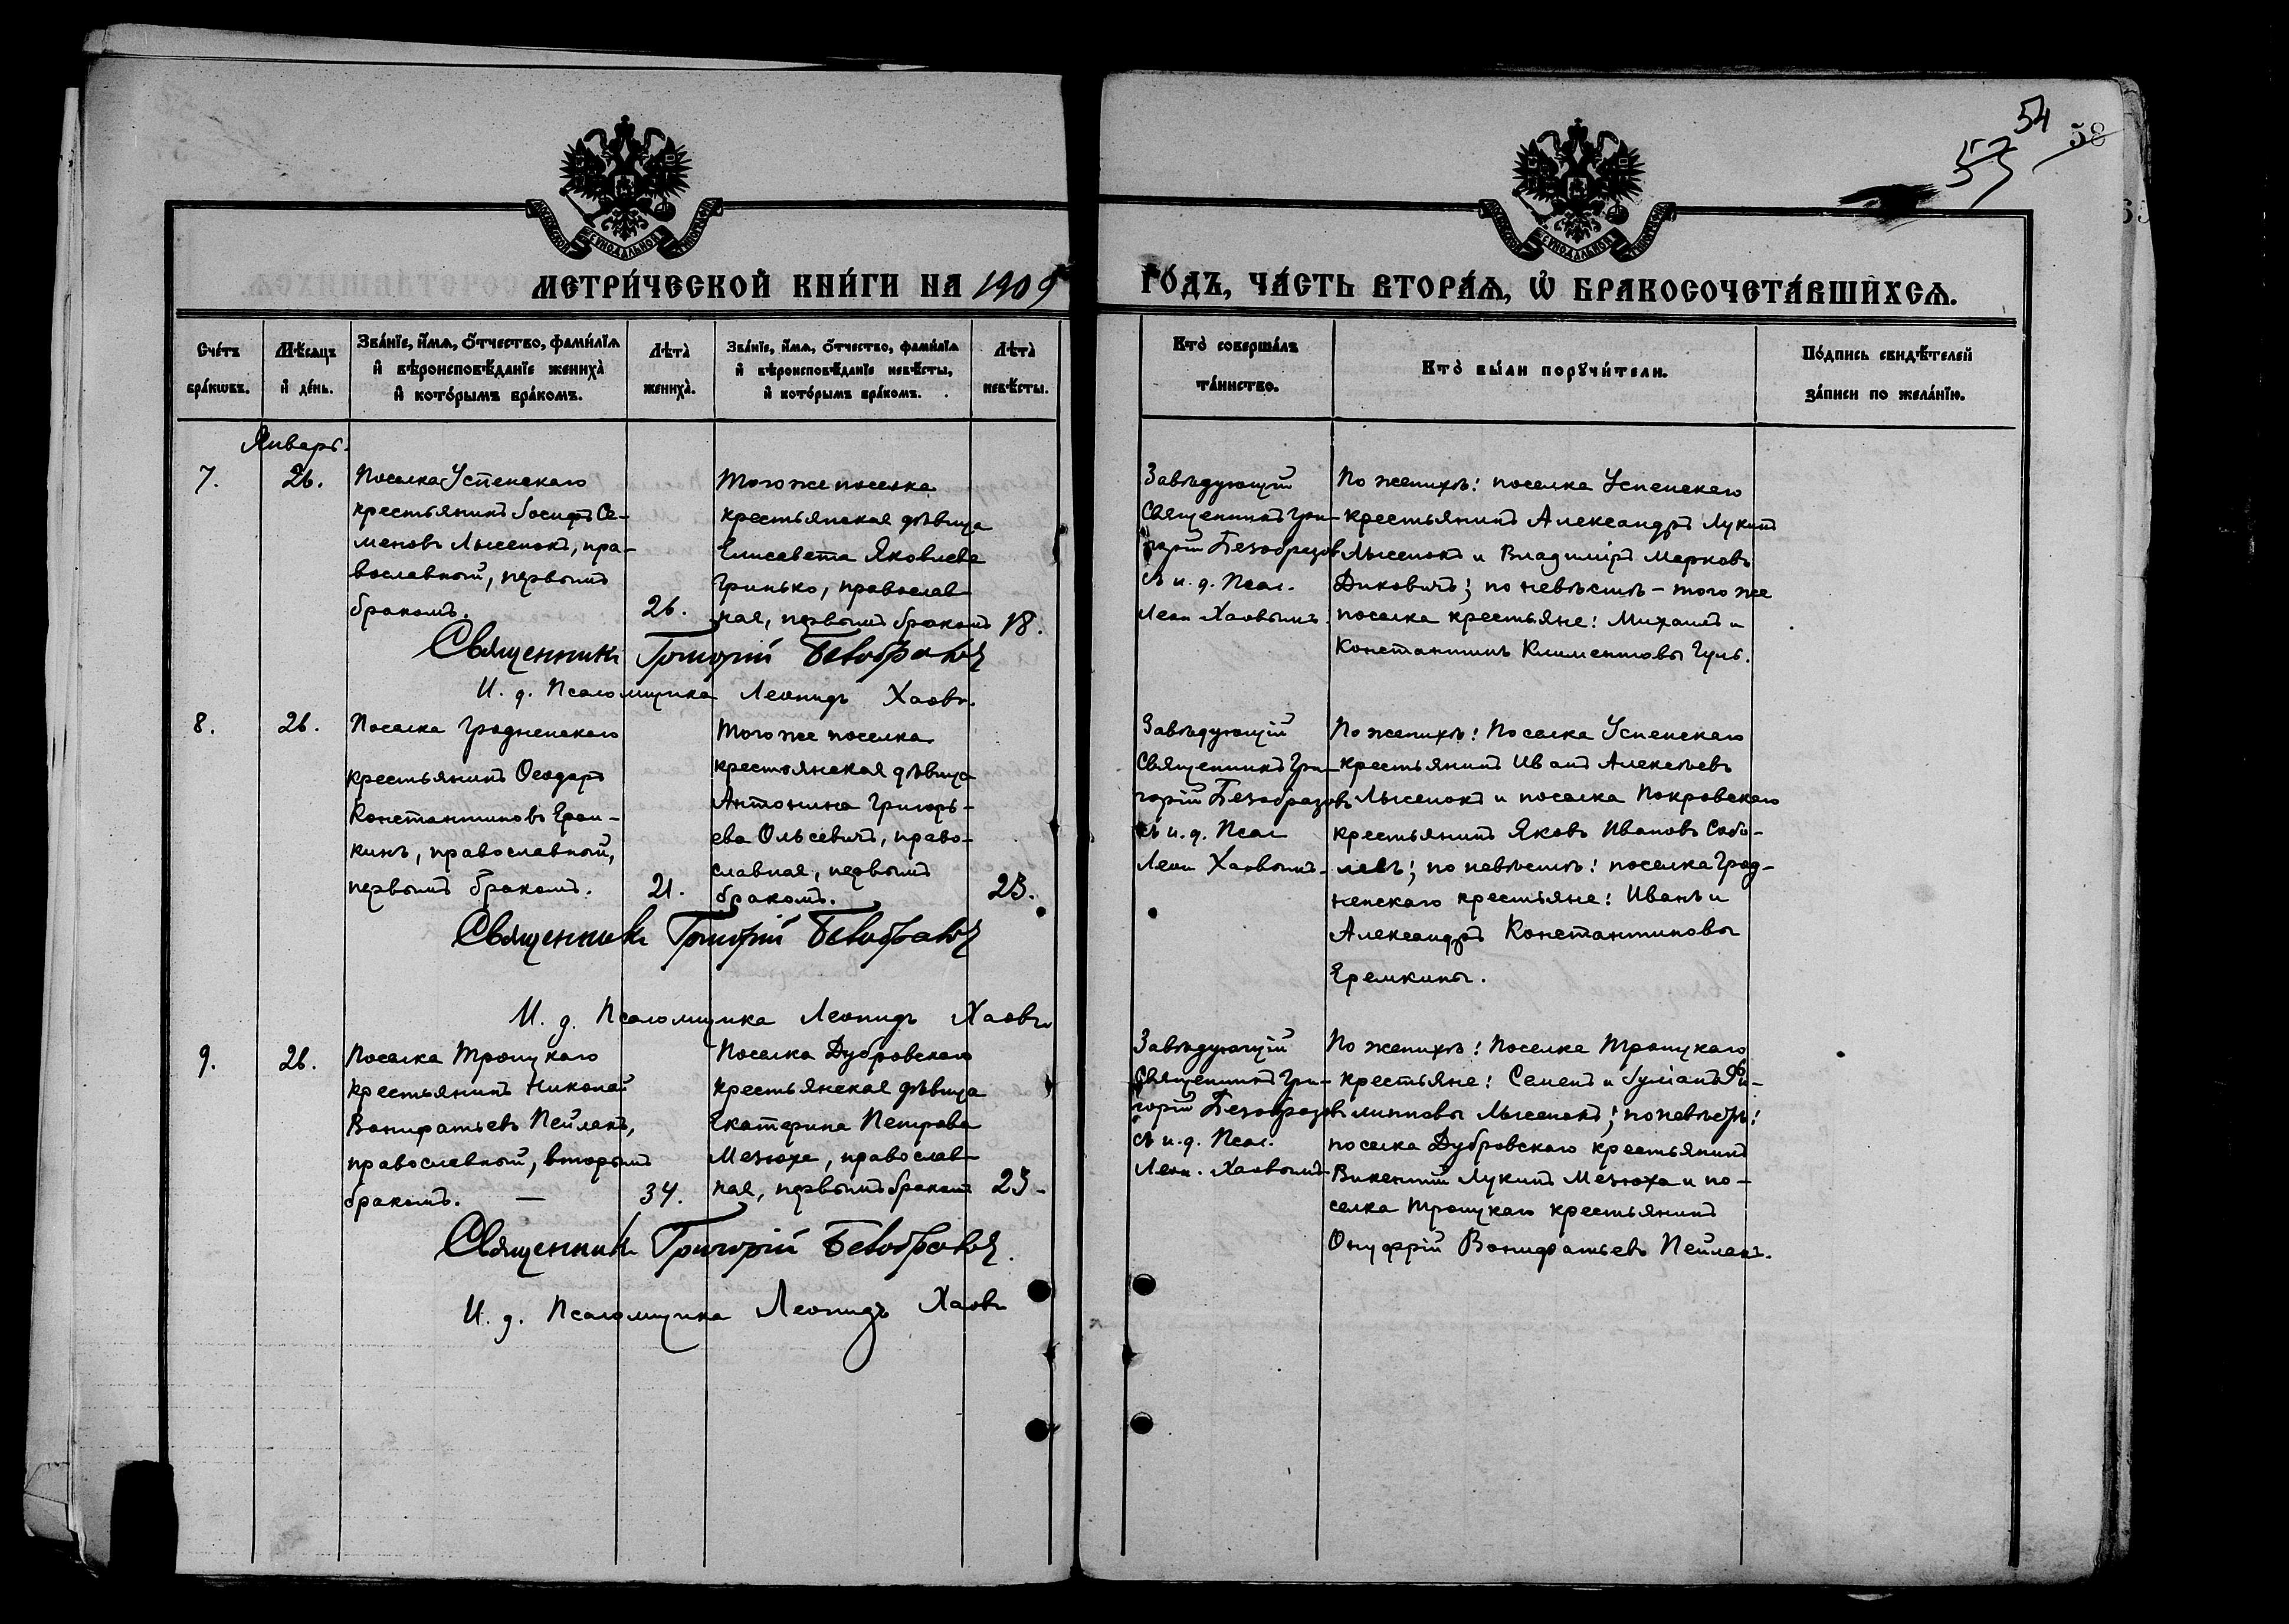 54
57
58
МЕТРИ́ЧЕСКОЙ КНИ́ГИ НА 1909
ГО́ДЪ, ЧА́СТЬ ВТОРА́Ѧ, Ѽ БРАКОСОЧЕТА́ВШИХСѦ.
Сче́тъ
бра́кѡвъ.
Мѣ́сѧцъ
и҆ де́нь.
Зва́нїе, и҆́мѧ, ѻ҆́тчество, фами́лїѧ
и҆ вѣроисповѣ́данїе жениха̀
и҆ кото́рымъ бра́комъ.
Лѣта̀
жениха̀.
Зва́нїе, и҆́мѧ, ѻ҆́тчество, фами́лїѧ
и҆ вѣроисповѣ́данїе невѣ́сты,
и҆ кото́рымъ бра́комъ.
Лѣта̀
невѣ́сты.
Кто̀ соверша́лъ
та́инство.
Кто̀ бы́ли порꙋчи́тели.
По́дпись свидѣ́телей
за́писи по жела́нїю.
Январь.
7.
26.
Поселка Успенскаго
крестьянинъ Іосифъ Се-
меновъ Лысенокъ, пра-
вославный, первымъ
бракомъ.
26.
Того же поселка
крестьянская дѣвица
Елисавета Яковлева
Гринько, православ-
ная, первымъ бракомъ
18.
Завѣдующій
Священникъ Гри-
горій Безобразовъ
съ и. д. Псал.
Леон Хаовымъ.
По женихѣ: поселка Успенскаго
крестьянинъ Александръ Лукинъ
Лысенокъ и Владиміръ Марковъ
Диковичъ; по невѣстѣ - того же
поселка крестьяне: Михаилъ и
Константинъ Климентовы Гуль.
Священникъ Григорій Безобразовъ
И. д. Псаломщика Леонидъ Хаовъ.
8.
26.
Поселка Гродненскаго
крестьянинъ Ѳеодоръ
Константиновъ Ерем-
кинъ, православный,
первымъ бракомъ.
21.
Того же поселка
крестьянская дѣвица
Антонина Григорь-
ева Ольсевичъ, право-
славная, первымъ
бракомъ.
23.
Завѣдующій
Священникъ Гри-
горій Безобразовъ
съ и. д. Псал
Леон Хаовымъ.
По женихѣ: Поселка Успенскаго
крестьянинъ Иванъ Алексѣевъ
Лысенокъ и поселка Покровскаго
крестьянинъ Яковъ Ивановъ Собо-
левъ; по невѣстѣ: поселка Грод-
ненскаго крестьяне: Иванъ и
Александръ Константиновы
Еремкины.
Священникъ Григорій Безобразовъ
И. д. Псаломщика Леонидъ Хаовъ
9.
26.
Поселка Троицкаго
крестьянинъ Николай
Вонифатьевъ Пейланъ,
православный, вторымъ
бракомъ. —
34.
Поселка Дубровскаго
крестьянская дѣвица
Екатерина Петрова
Мезюха, православ-
ная, первымъ бракомъ
23.
Завѣдующій
Священникъ Гри-
горій Безобразовъ
съ и. д. Псал.
Леон. Хаовымъ
По женихѣ: Поселка Троицкаго
крестьяне: Семенъ и Іуліанъ Фи-
липповы Лысенокъ; по невѣстѣ:
поселка Дубровскаго крестьянинъ
Викентій Лукинъ Мезюха и по-
селка Троицкаго крестьянинъ
Онуфрій Вонифатьевъ Пейланъ.
Священникъ Григорій Безобразовъ.
И. д. Псаломщика Леонидъ Хаовъ